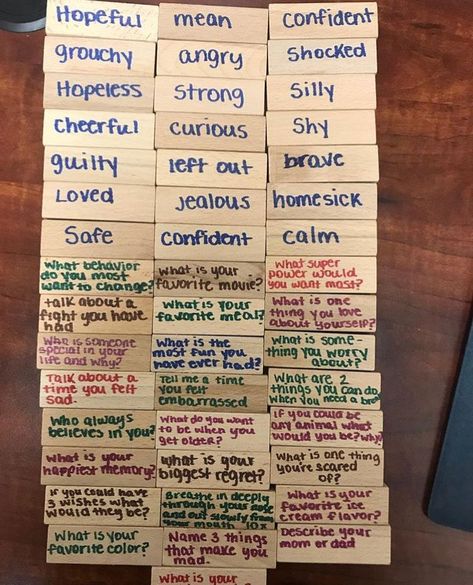 Hopeful
mean
confident
grouchy
angry
Shocked
Hopeless
Strong
Silly
Cheerful
curious
Shy
guilty
left out
brave
Loved
jealous
homesick
Safe
Confident
calm
What behavior
do you most
want to change?
What is your
favorite movie?
What super
power would
you want most?
talk about a
fight you have
had
What is your
favorite meal?
What is one
thing you love
about yourself?
Who is someone
special in your
life and why?
What is the
most fun you
have ever had?
What is some-
thing you worry
about?
Talk about a
time you felt
sad.
Tell me a time
you felt
embarrassed
What are 2
things you can do
when you need a
Who always
believes in you?
What do you want
to be when you
get older?
if you could be
any animal what
would you be? why?
What is your
happiest memory?
What is your
biggest regret?
What is one thing
you're scared
of?
if you could have
3 wishes what
would they be?
Breathe in deeply
through your nose
and out slowly from
your mouth 10x
What is your
favorite ice
cream flavor?
What is your
favorite color?
Name 3 things
that make you
mad.
Describe your
mom or dad
What is your